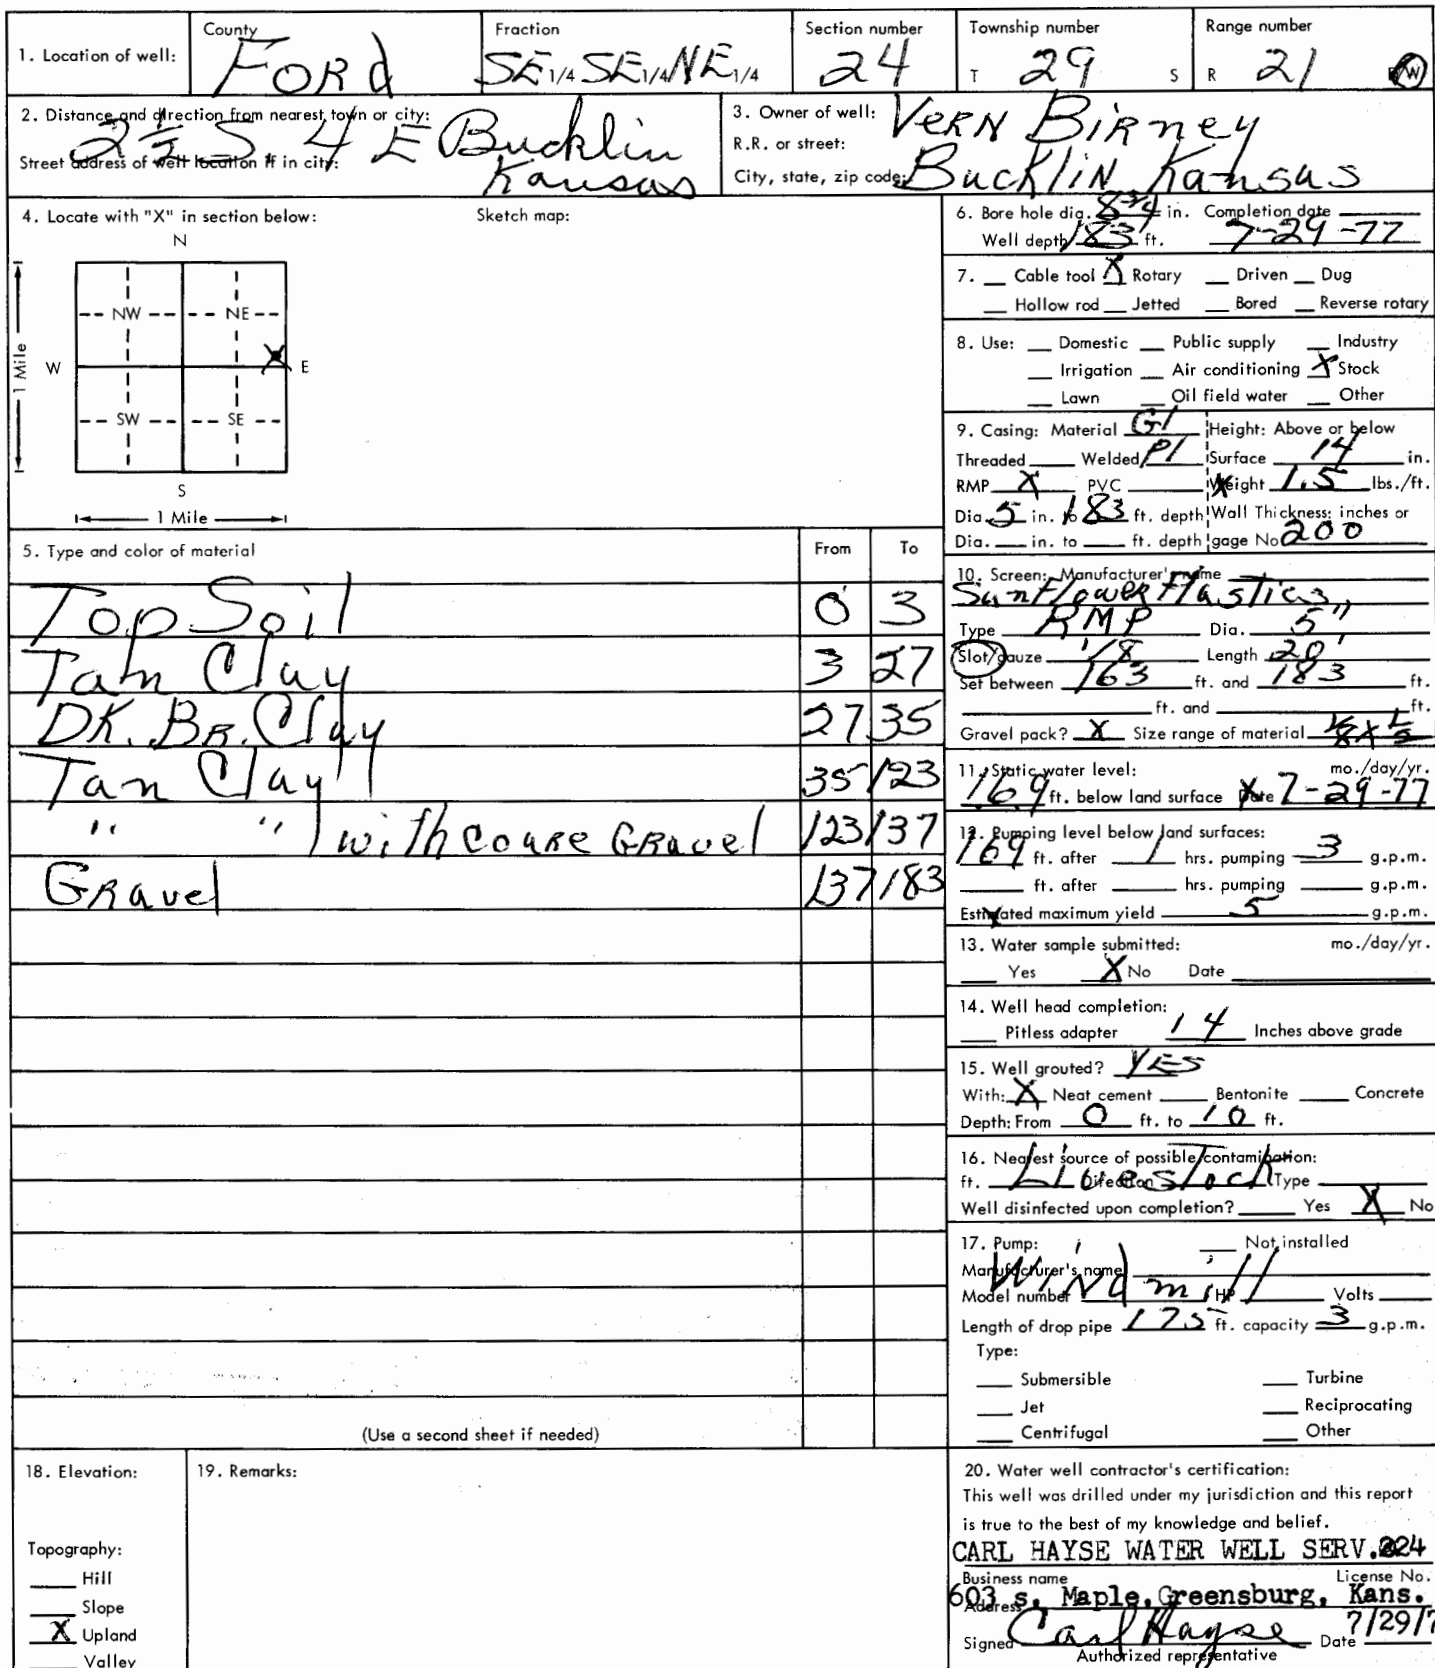 1. Location of well: County Ford Fraction SE 1/4 SE 1/4 NE 1/4 Section number 24 Township number T 29 S Range number R 21 W
2. Distance and direction from nearest town or city: 2 1/2 S. 4 E Bucklin Kansas
Street address of well location if in city:
3. Owner of well: Vern Birney
R.R. or street:
City, state, zip code: Bucklin Kansas
4. Locate with "X" in section below: Sketch map:
N
NW NE
W X E
SW SE
S
1 Mile
1 Mile
5. Type and color of material From To
Top Soil 0 3
Tan Clay 3 27
DK. Br. Clay 27 35
Tan Clay 35 123
" " with Coarse Gravel 123 137
Gravel 137 183
(Use a second sheet if needed)
6. Bore hole dia. 8 3/4 in. Completion date
Well depth 183 ft. 7-29-77
7. Cable tool X Rotary Driven Dug
Hollow rod Jetted Bored Reverse rotary
8. Use: Domestic Public supply Industry
Irrigation Air conditioning X Stock
Lawn Oil field water Other
9. Casing: Material Gl Height: Above or below
Threaded Welded Pl Surface 14 in.
RMP X PVC Weight 1.5 lbs./ft.
Dia. 5 in. to 183 ft. depth Wall Thickness: inches or
Dia. in. to ft. depth gage No 200
10. Screen: Manufacturer's name
Sunflower Plastics
Type RMP Dia. 5"
Slot/gauze 1/8 Length 20'
Set between 163 ft. and 183 ft.
ft. and ft.
Gravel pack? X Size range of material
11. Static water level: mo./day/yr.
169 ft. below land surface Date 7-29-77
12. Pumping level below land surfaces:
169 ft. after 1 hrs. pumping 3 g.p.m.
ft. after hrs. pumping g.p.m.
Estimated maximum yield 5 g.p.m.
13. Water sample submitted: mo./day/yr.
Yes X No Date
14. Well head completion:
Pitless adapter 14 Inches above grade
15. Well grouted? YES
With: X Neat cement Bentonite Concrete
Depth: From 0 ft. to 10 ft.
16. Nearest source of possible contamination:
ft. Livestock Direction Type
Well disinfected upon completion? Yes X No
17. Pump: Not installed
Manufacturer's name Windmill
Model number HP Volts
Length of drop pipe 175 ft. capacity 3 g.p.m.
Type:
Submersible Turbine
Jet Reciprocating
Centrifugal Other
18. Elevation:
Topography:
Hill
Slope
X Upland
Valley
19. Remarks:
20. Water well contractor's certification:
This well was drilled under my jurisdiction and this report
is true to the best of my knowledge and belief.
CARL HAYSE WATER WELL SERV. 224
Business name License No.
603 s. Maple, Greensburg, Kans.
Address
Signed Carl Hayse Date 7/29/7
Authorized representative